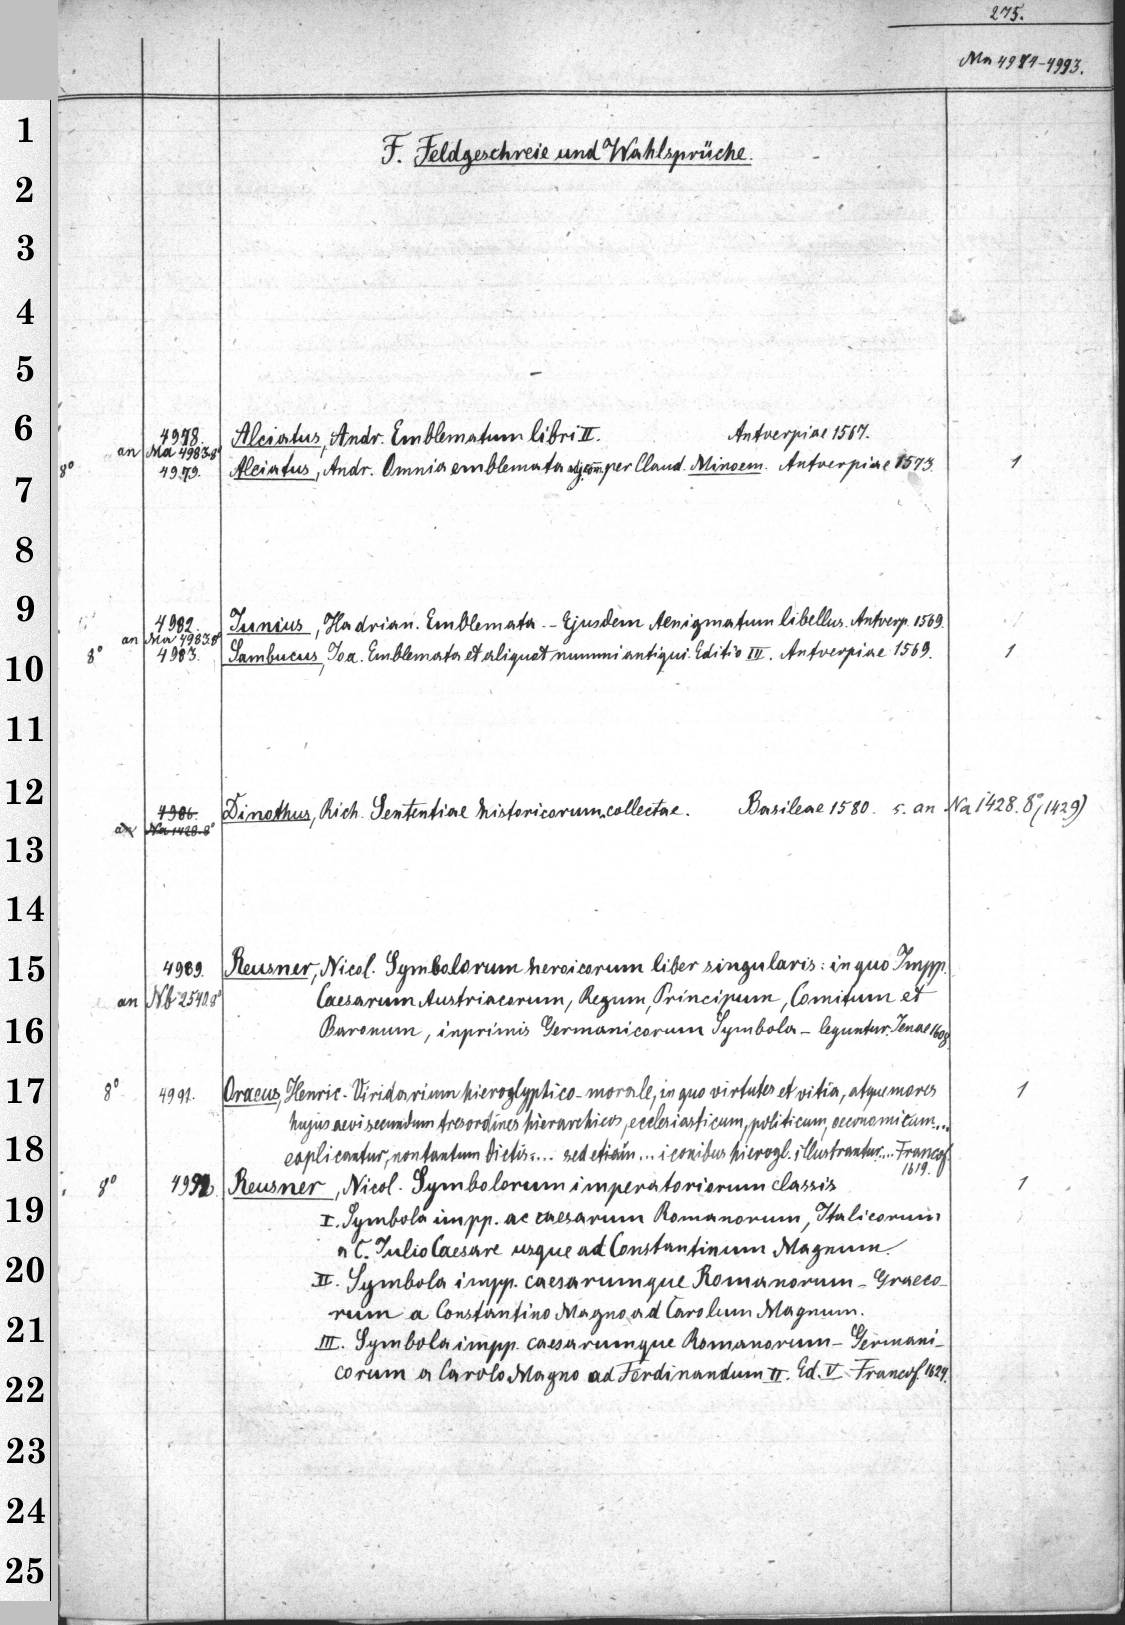 275.
Ma 4974-4993.
1
F. Feldgeschreie und Wahlsprüche.
2
3
4
5
6
4978. Alciatus, Andr. Emblematum libri II. Antverpiae 1567.
an Ma 4983.8°
8° 4979. Alciatus, Andr. Omnia emblemata adj. comm. per Claud. Minoem. Antverpiae 1573. 1
7
8
9
4982. Junius, Hadrian. Emblemata. - Ejusdem Aenigmatum libellus. Antverp. 1569.
an Ma 4983.8°
8° 4983. Sambucus, Joa. Emblemata et aliquot nummi antiqui. Editio III. Antverpiae 1569. 1
10
11
12
4986. Dinothus, Rich. Sententiae historicorum collectae. Basileae 1580. s. an Na 1428.8° (1429)
an Na 1428.8°
13
14
15
4989. Reusner, Nicol. Symbolorum heroicorum liber singularis: in quo Impp.
an Nb 2540.8° Caesarum Austriacorum, Regum, Principum, Comitum et
16
Baronum, inprimis Germanicorum Symbola - leguntur. Jenae 1608.
17
8° 4991. Oraeus, Henric. Viridarium hieroglyptico-morale, in quo virtutes et vitia, atque mores 1
hujus aevi secundum tres ordines hierarchicos, ecclesiasticum, politicum, oeconomicum...
18
explicantur, non tantum dictis .... sed etiam ... iconibus hierogl. illustrantur.... Francof.
1619.
8° 4992. Reusner, Nicol. Symbolorum imperatoriorum classis 1
19
I. Symbola impp. ac caesarum Romanorum, Italicorum
a C. Julio Caesare usque ad Constantinum Magnum.
20
II. Symbola impp. caesarumque Romanorum-Graeco-
rum a Constantino Magno ad Carolum Magnum.
21
III. Symbola impp. caesarumque Romanorum-Germani-
22
corum a Carolo Magno ad Ferdinandum II. Ed. V. Francof.
23
24
25